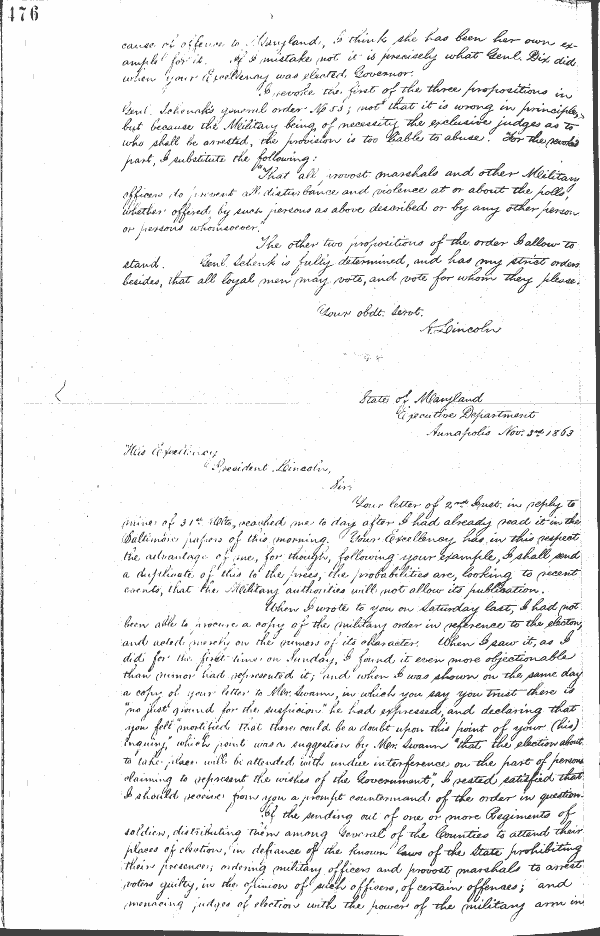 476
cause of offence to Maryland, I think she has been her own ex-
ample for it. If I mistake not it is precisely what Genl. Dix did
when your Excellency was elected Governor.
I revoke the first of the three propositions in
Genl. Schenck's general order No 53; not that it is wrong in principle,
but because the Military being of necessity the exclusive judges as to
who shall be arrested, the provision is too liable to abuse. For the revoked
part, I substitute the following:
"That all provost marshals and other Military
officers do prevent all disturbance and violence at or about the polls,
whether offered by such persons as above described or by any other person
or persons whomsoever."
The other two propositions of the order I allow to
stand. Genl. Schenk is fully determined, and has my strict orders
besides, that all loyal men may vote, and vote for whom they please.
Your obdt. Servt.
A. Lincoln
State of Maryland
Executive Department
Annapolis Nov. 3rd 1863
His Excellency
President Lincoln,
Sir,
Your letter of 2nd Inst. in reply to
mine of 31st Ulto, reached me to day after I had already read it in the
Baltimore papers of this morning. Your Excellency has, in this respect
the advantage of me, for though, following your example, I shall send
a duplicate of this to the press, the probabilities are, looking to recent
events, that the Military authorities will not allow its publication.
When I wrote to you on Saturday last, I had not
been able to procure a copy of the military order in reference to the election,
and acted merely on the rumors of its character. When I saw it, as I
did for the first time on Sunday, I found it even more objectionable
than rumor had represented it; and when I was shown on the same day
a copy of your letter to Mr. Swann, in which you say you trust there is
"no just ground for the suspicion" he had expressed, and declaring that
you felt "mortified that there could be a doubt upon this point of your (his)
inquiry," which point was a suggestion by Mr. Swann "that the election about
to take place will be attended with undue interference on the part of persons
claiming to represent the wishes of the Government", I rested satisfied that
I should receive from you a prompt countermand of the order in question.
Of the sending out of one or more Regiments of
soldiers, distributing them among several of the Counties to attend their
places of election, in defiance of the known laws of the State prohibiting
their presence; ordering military officers and provost marshals to arrest
voters guilty, in the opinion of such officers, of certain offenses; and
menacing judges of election with the power of the military arm in